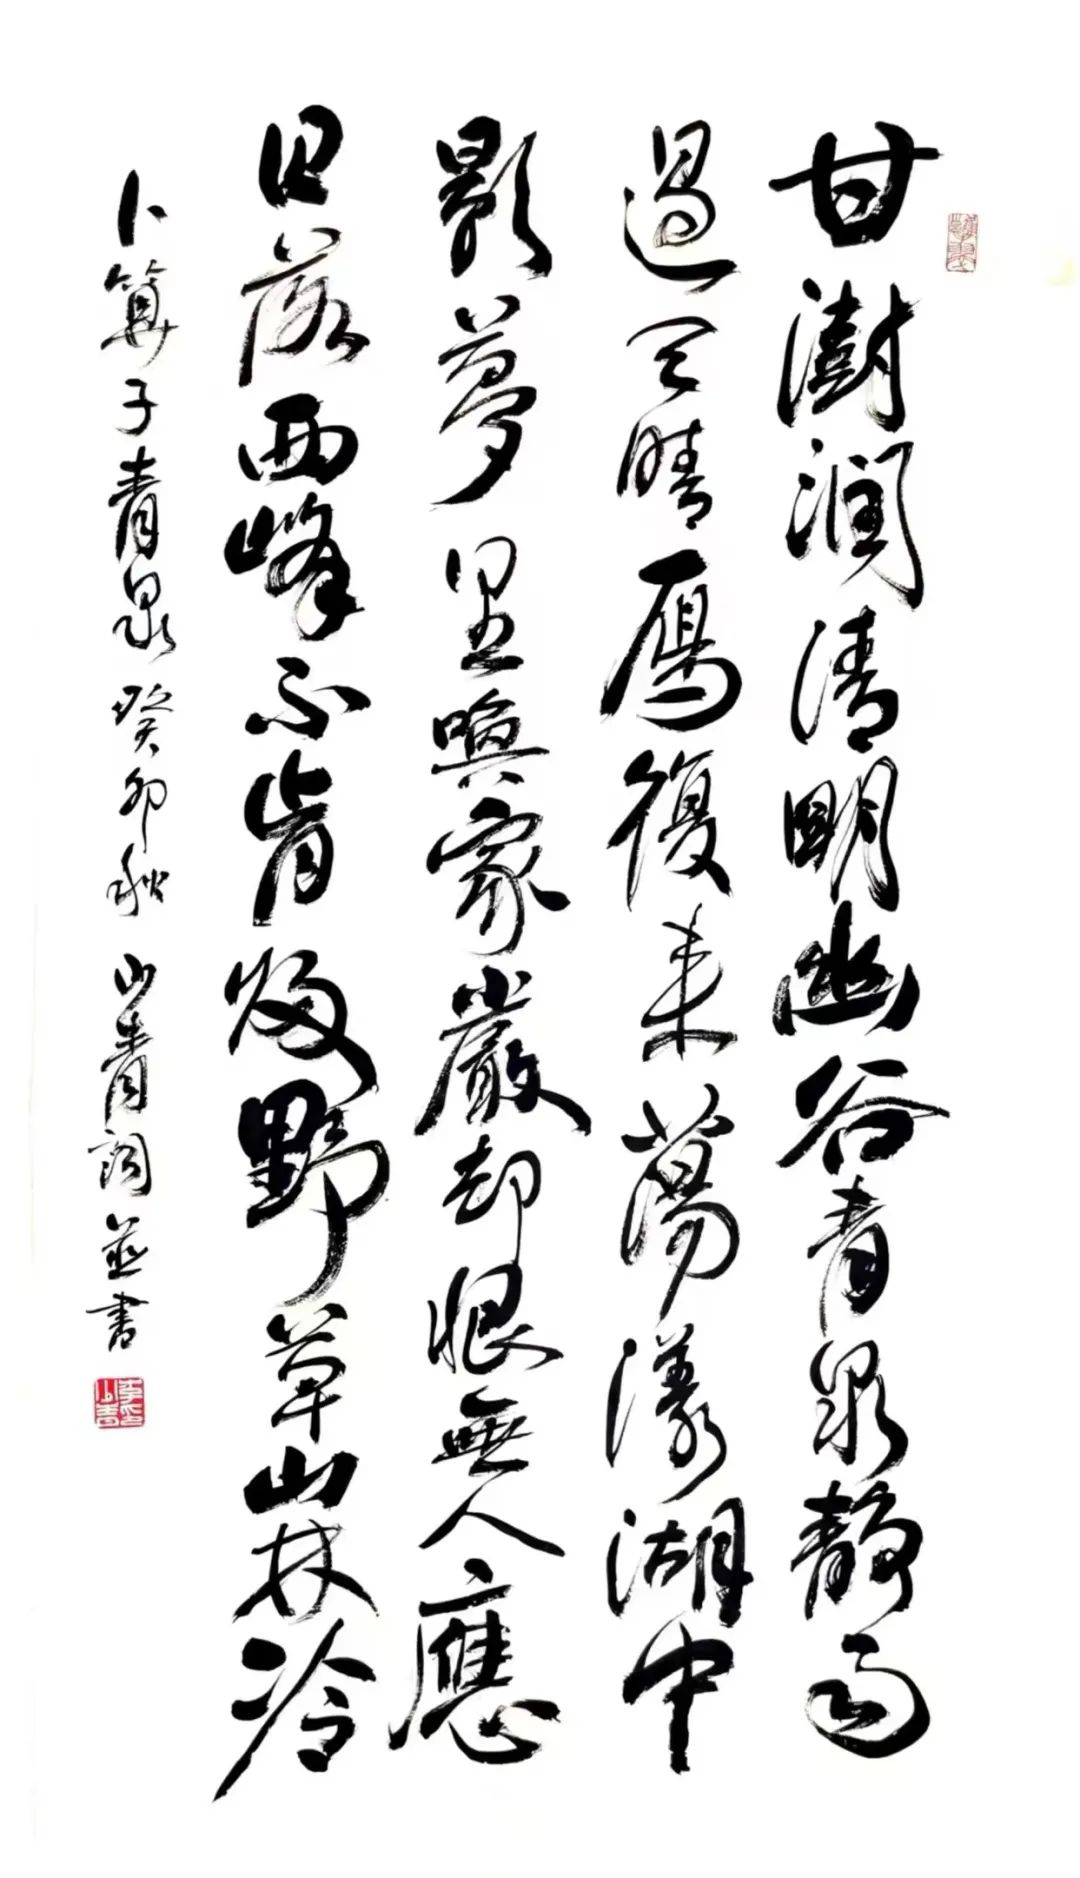 甘澍潤清明幽谷青泉靜雨
過天晴雁復来蕩漾湖中
影夢里喚家嚴却恨無人應
日落西峰不肯歸野草山林冷
卜算子青泉 癸卯秋 山青詞並書